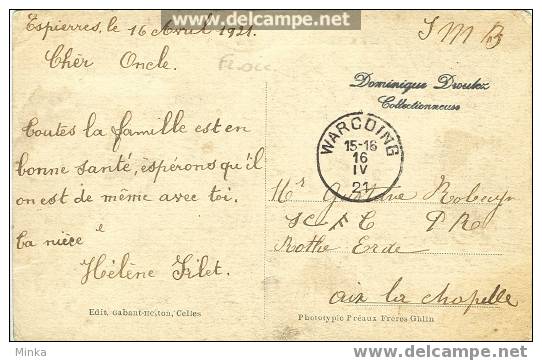 www.delcampe.net
Espierres, le 16 Avril 1921.
S M B
Chèr Oncle.
Dominique Droulez
Collectionneuse
WARCOING
15-16
16
IV
21
Toutes la famille est en
bonne santé, espérons qu'il
en est de même avec toi.
ta nièce
Hélène
Mr Gustave
Rothe Erde
aix la chapelle
Edit. Gabant-Heïton, Celles
Phototypie Préaux Frères Ghlin
Minka
www.delcampe.net